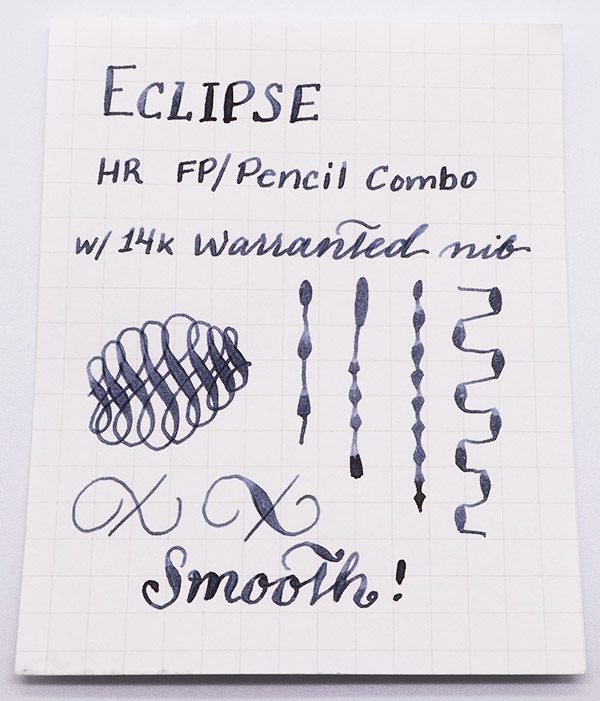 ECLIPSE
HR FP/Pencil Combo
w/ 14k Warranted nib
Smooth!